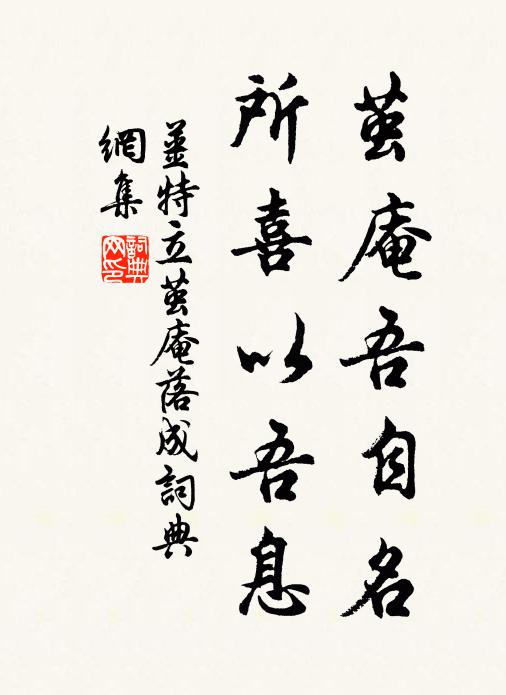 茧庵吾自名
所喜以吾息
姜特立茧庵落成詞典
網集
詞典网印